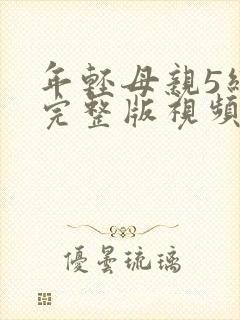 年輕母親5
完整版視頻
優曇琉璃